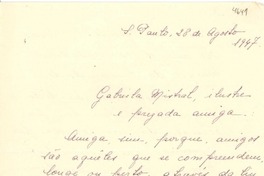 4649
S. Paulo, 28 de Agosto
1947
Gabriela Mistral, ilustre
e prezada amiga:
Amiga sim, porque, amigos
são aqueles que se compreendem,
longe ou perto, atravez da